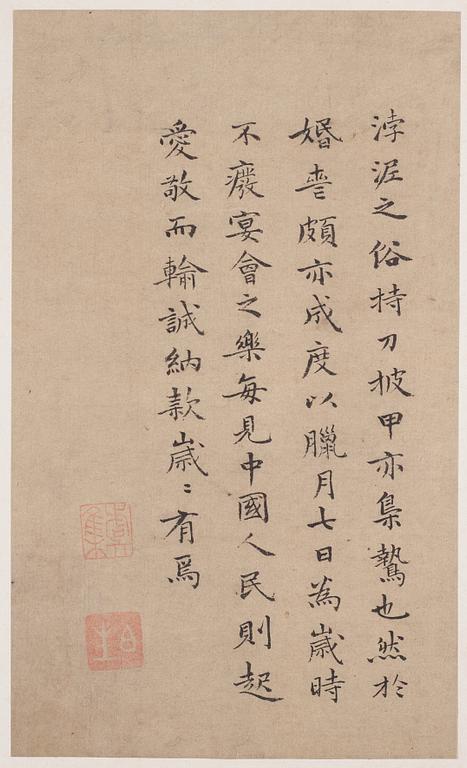 浡泥之俗持刀披甲亦梟鷙也然於
婚喪頗亦成度以臘月七日為歲時
不廢宴會之樂每見中國人民則起
愛敬而輸誠納款歲〻有焉
虞集